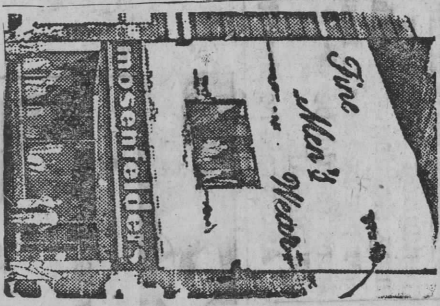 Fine
Men's
Wear
mosenfelders